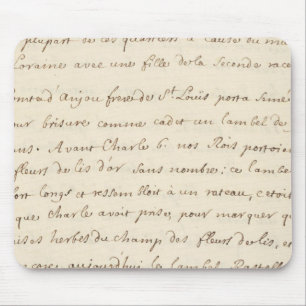 plupart de ces quartiers a cause du ma
Loraine avec une fille de la Seconde race
omte d'Anjou frere de St Loüis porta Semé
our brisure comme cadet un lambel de
ans. Avant Charle 6. nos Rois portoien
fleurs de lis d'or Sans nombre; ce lambe
ort longs et ressembloit à un rateau, c'etoit
que Charle avoit prise, pour marquer q
ises herbes du champ des fleurs de lis, et
aujourd'hui le lambel